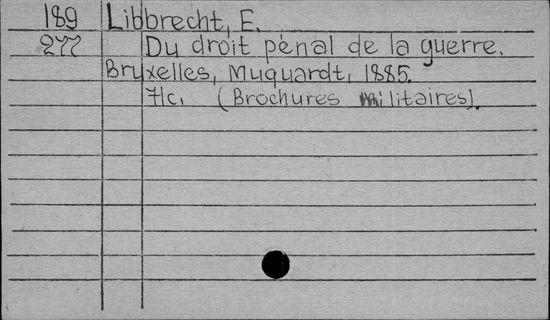 189 Libbrecht, E.
277 Du droit pénal de la guerre.
Bruxelles, Muquardt, 1885.
7/c. (Brochures militaires).